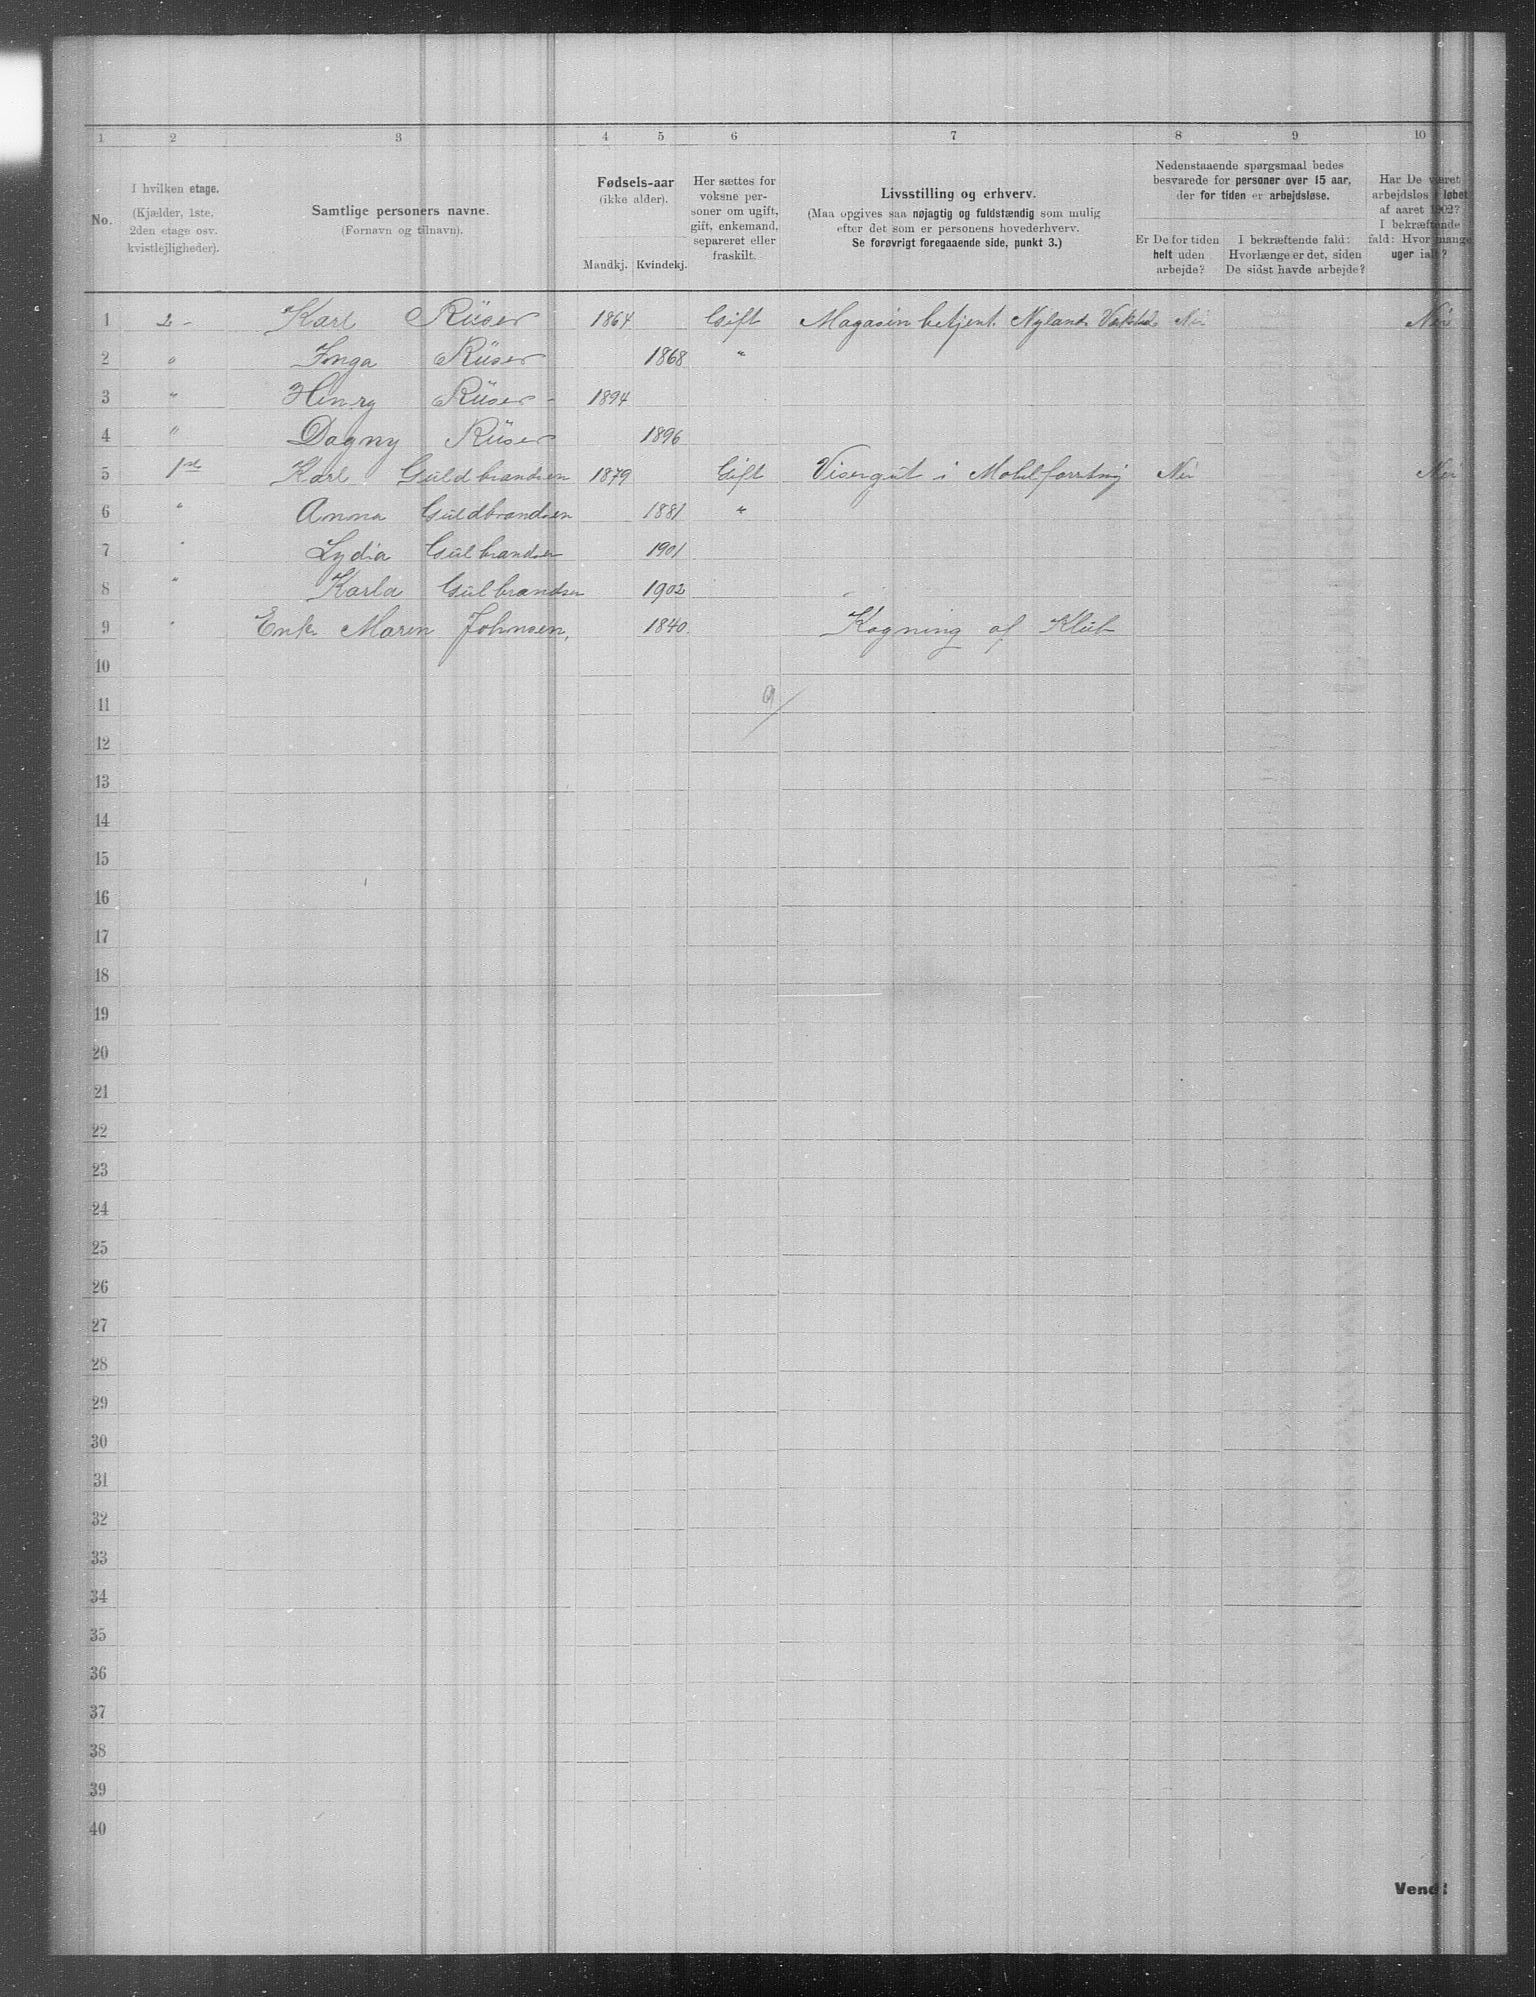 1 2 3 4 5 6 7 8 9 10
No.
I hvilken etage.
(Kjælder, 1ste,
2den etage osv.
kvistlejligheder).
Samtlige personers navne.
(Fornavn og tilnavn).
Fødsels-aar
(ikke alder).
Mandkj. Kvindekj.
Her sættes for
voksne per-
soner om ugift,
gift, enkemand,
separeret eller
fraskilt.
Livsstilling og erhverv.
(Maa opgives saa nøjagtig og fuldstændig som mulig
efter det som er personens hovederhverv.
Se forøvrigt foregaaende side, punkt 3.)
Nedenstaaende spørgsmaal bedes
besvarede for personer over 15 aar,
der for tiden er arbejdsløse.
Er De for tiden
helt uden
arbejde?
I bekræftende fald:
Hvorlænge er det, siden
De sidst havde arbejde?
Har De været
arbejdsløs i løbet
af aaret 1902?
I bekræftende
fald: Hvor mange
uger ialt?
1 2 - Karl Rüser 1864 Gift Magasinbetjent Nylands Nei Nei
2 " Inga Rüser 1868 "
3 " Henry Rüser - 1894
4 " Dagny Rüser 1896
5 1st Karl Guldbrandsen 1879 Gift Visergut i Nei Nei
6 " Anna Guldbrandsen 1881 "
7 " Lydia Gulbrandsen 1901
8 " Karla Gulbrandsen 1902
9 " Enke Maren Johnsen, 1840. Kogning af Klüb
10
11 9/
12
13
14
15
16
17
18
19
20
21
22
23
24
25
26
27
28
29
30
31
32
33
34
35
36
37
38
39
40
Vend!